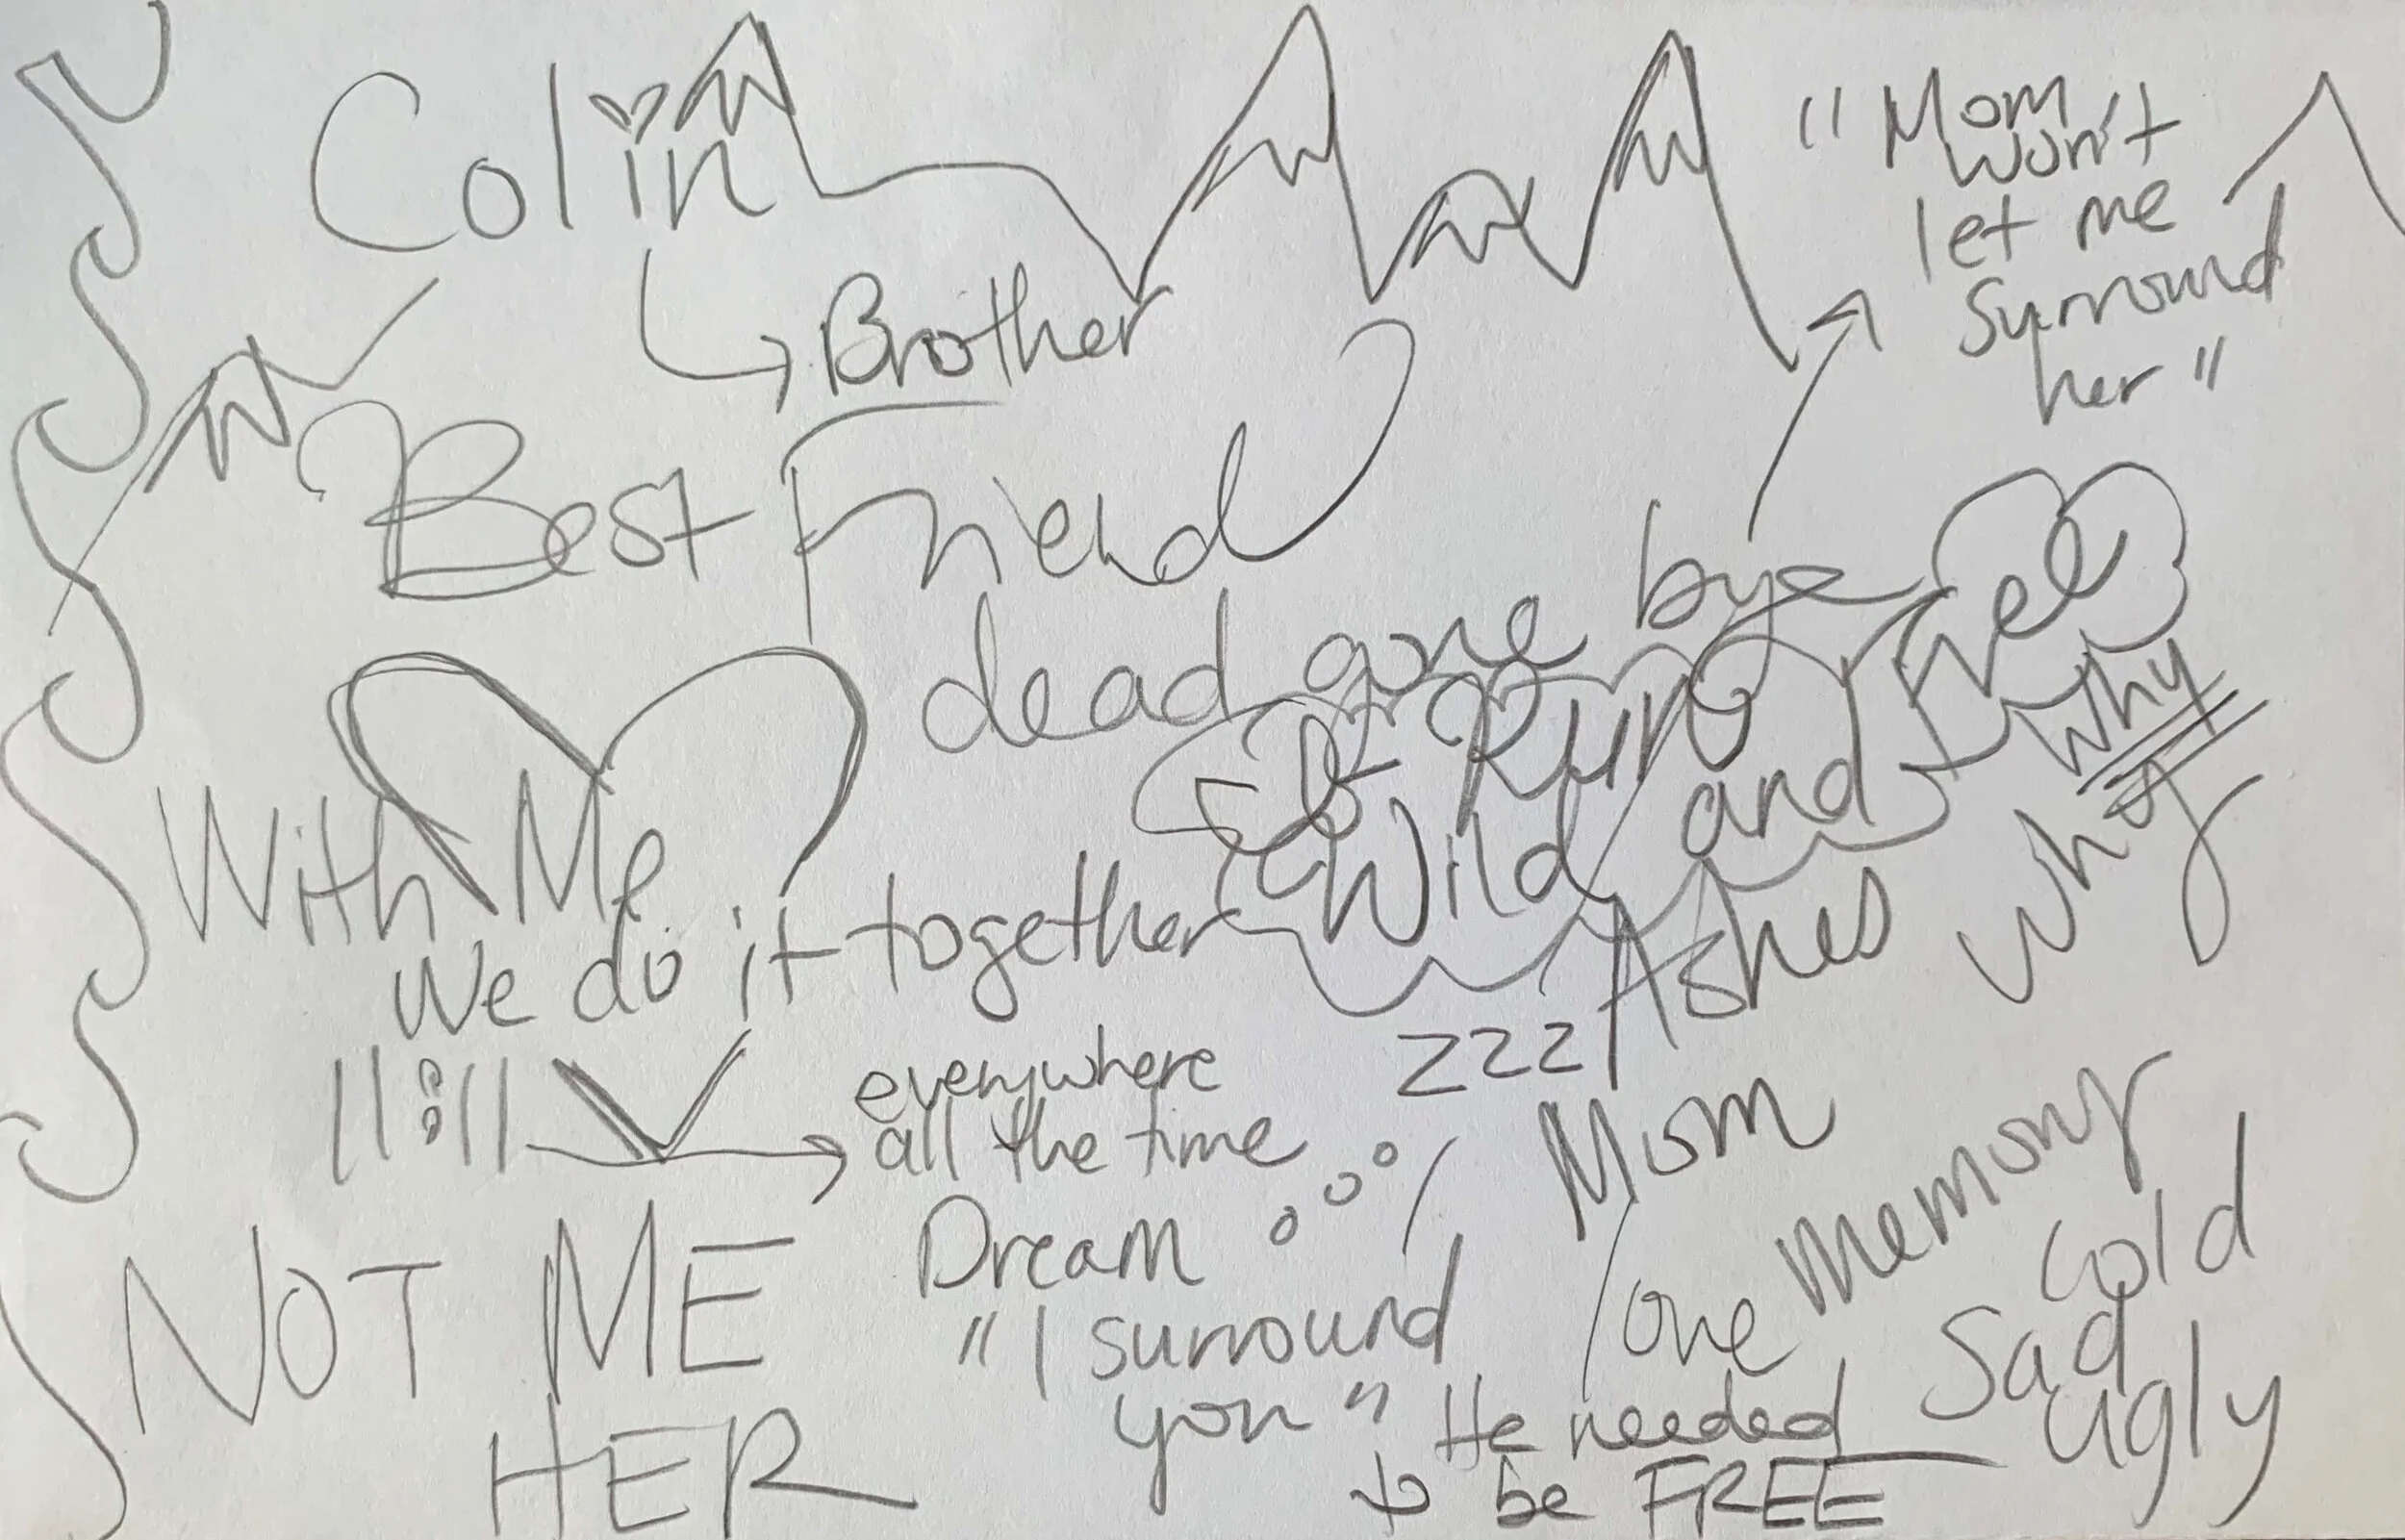 Colin
Brother
"Mom
won't
let me
surround
her"
Best Friend
dead gone bye
Run
Wild and Free
Why
Why
With Me
We do it together
Ashes
11:11
everywhere
all the time
zzz
Mom
Dream
"I surround
you"
one memory
cold
sad
ugly
NOT ME
HER
He needed
to be FREE